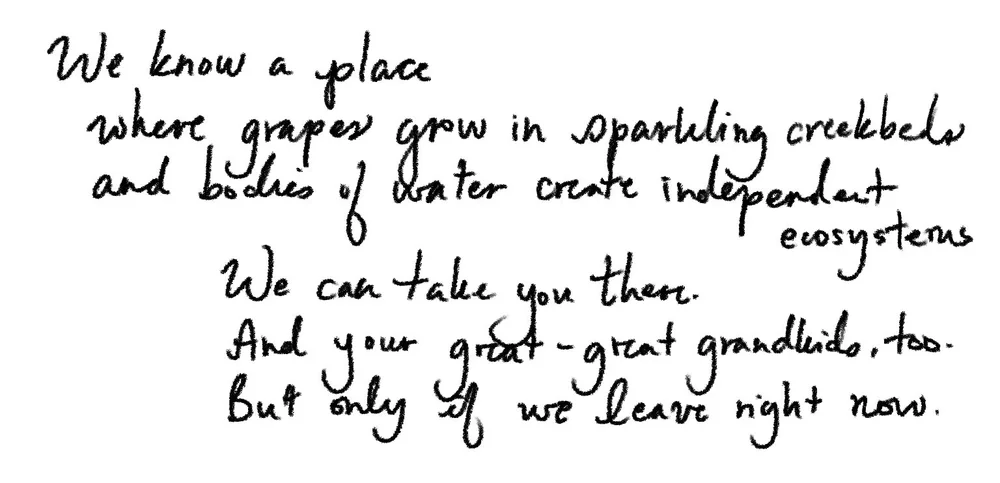 We know a place
where grapes grow in sparkling creekbeds
and bodies of water create independent
ecosystems
We can take you there.
And your great-great grandkids, too.
But only if we leave right now.